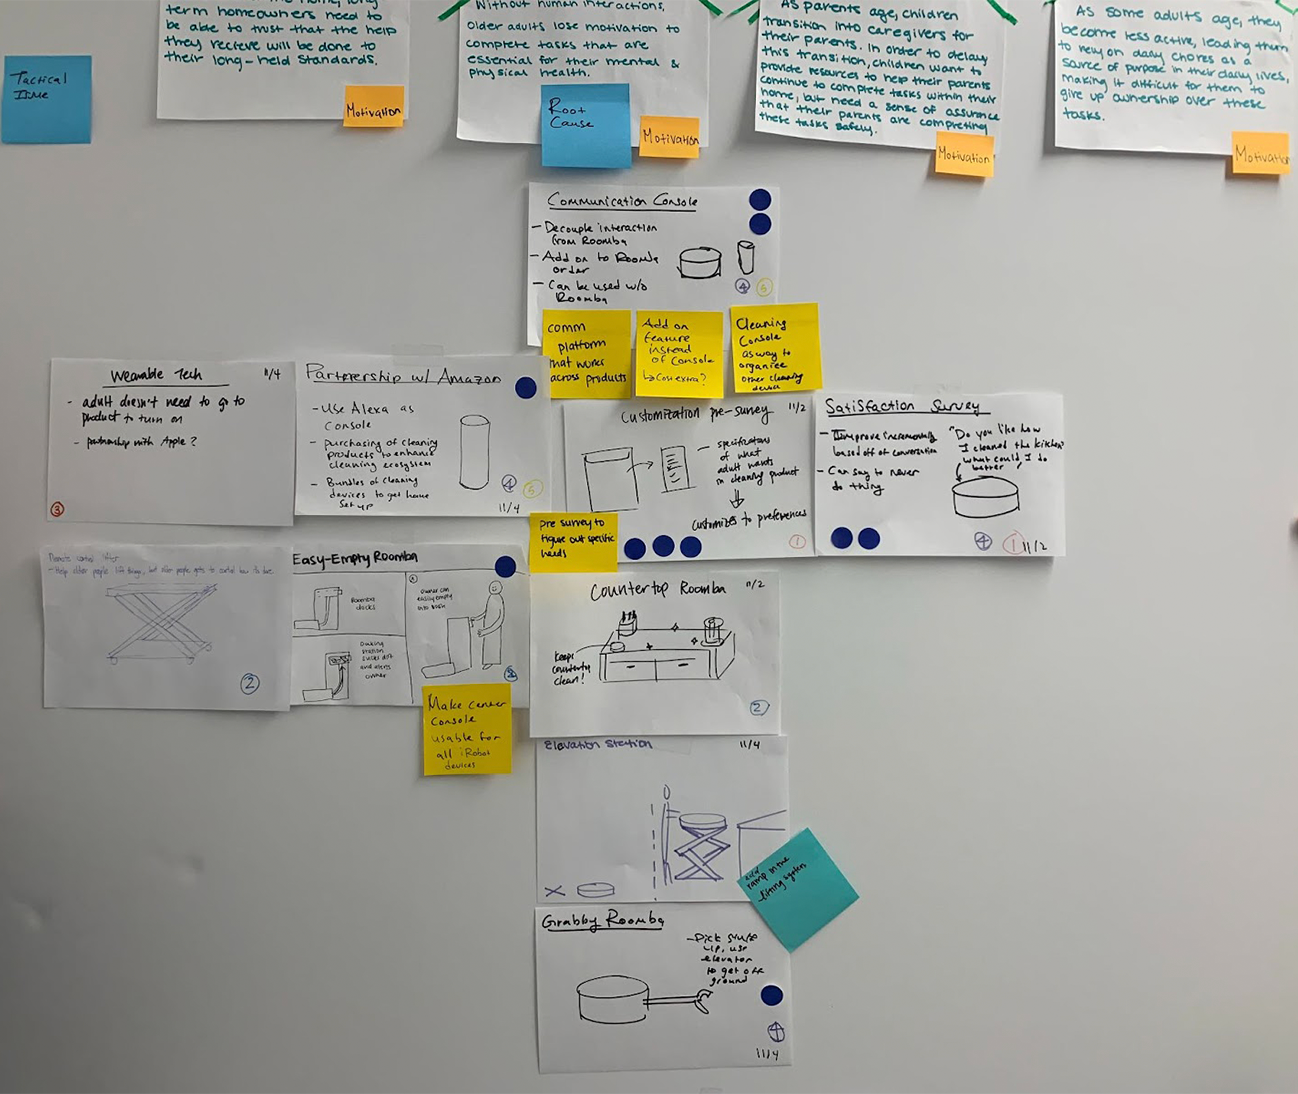 term homeowners need to
be able to trust that the help
they recieve will be done to
their long-held standards.
Motivation
Tactical
Time
Without human interactions,
older adults lose motivation to
complete tasks that are
essential for their mental &
physical health.
Root
Cause
Motivation
As parents age, children
transition into caregivers for
their parents. In order to delay
this transition, children want to
provide resources to help their parents
continue to complete tasks within their
home, but need a sense of assurance
that their parents are completing
these tasks safely.
Motivation
As some adults age, they
become less active, leading them
to rely on daily chores as a
source of purpose in their daily lives,
making it difficult for them to
give up ownership over these
tasks.
Motivation
Communication Console
- Decouple interaction
from Roomba
- Add on to Roomba
order
- Can be used w/o
Roomba
4 5
comm
platform
that works
across products
Add on
feature
instead
of Console
↳ Cost extra?
Cleaning
Console
as way to
organize
other cleaning
device
Wearable Tech 11/4
- adult doesn't need to go to
product to turn on
- partnership with Apple?
3
Partnership w/ Amazon
- Use Alexa as
Console
- purchasing of cleaning
products to enhance
cleaning ecosystem
- Bundles of cleaning
devices to get home
set up
4 5
11/4
Customization pre-survey 11/2
- specifications
of what
adult wants
in cleaning product
customizes to preferences
1
Pre survey to
figure out specific
needs
Satisfaction Survey
- Improve incrementally
based off of conversation
- Can say to never
do thing
"Do you like how
I cleaned the kitchen?
what could I do
better"
4 1 11/2
Remote control lifter
- Help older people lift things, but older people gets to control how its done
2
Easy-Empty Roomba
Roomba
docks
Docking
station
sucks dirt
and alerts
owner
owner can
easily empty
into trash
2
Make center
Console
usable for
all iRobot
devices
Countertop Roomba 11/2
keeps
countertop
clean!
2
Elevation Station 11/4
ramp on the
lifting system
Grabby Roomba
- Pick stuff
up, use
elevator
to get off
ground
4
11/4